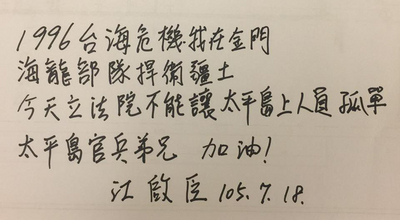 1996台海危機我在金門
海龍部隊捍衛疆土
今天立法院不能讓太平島上人員孤單
太平島官兵弟兄 加油!
江啟臣 105.7.18.